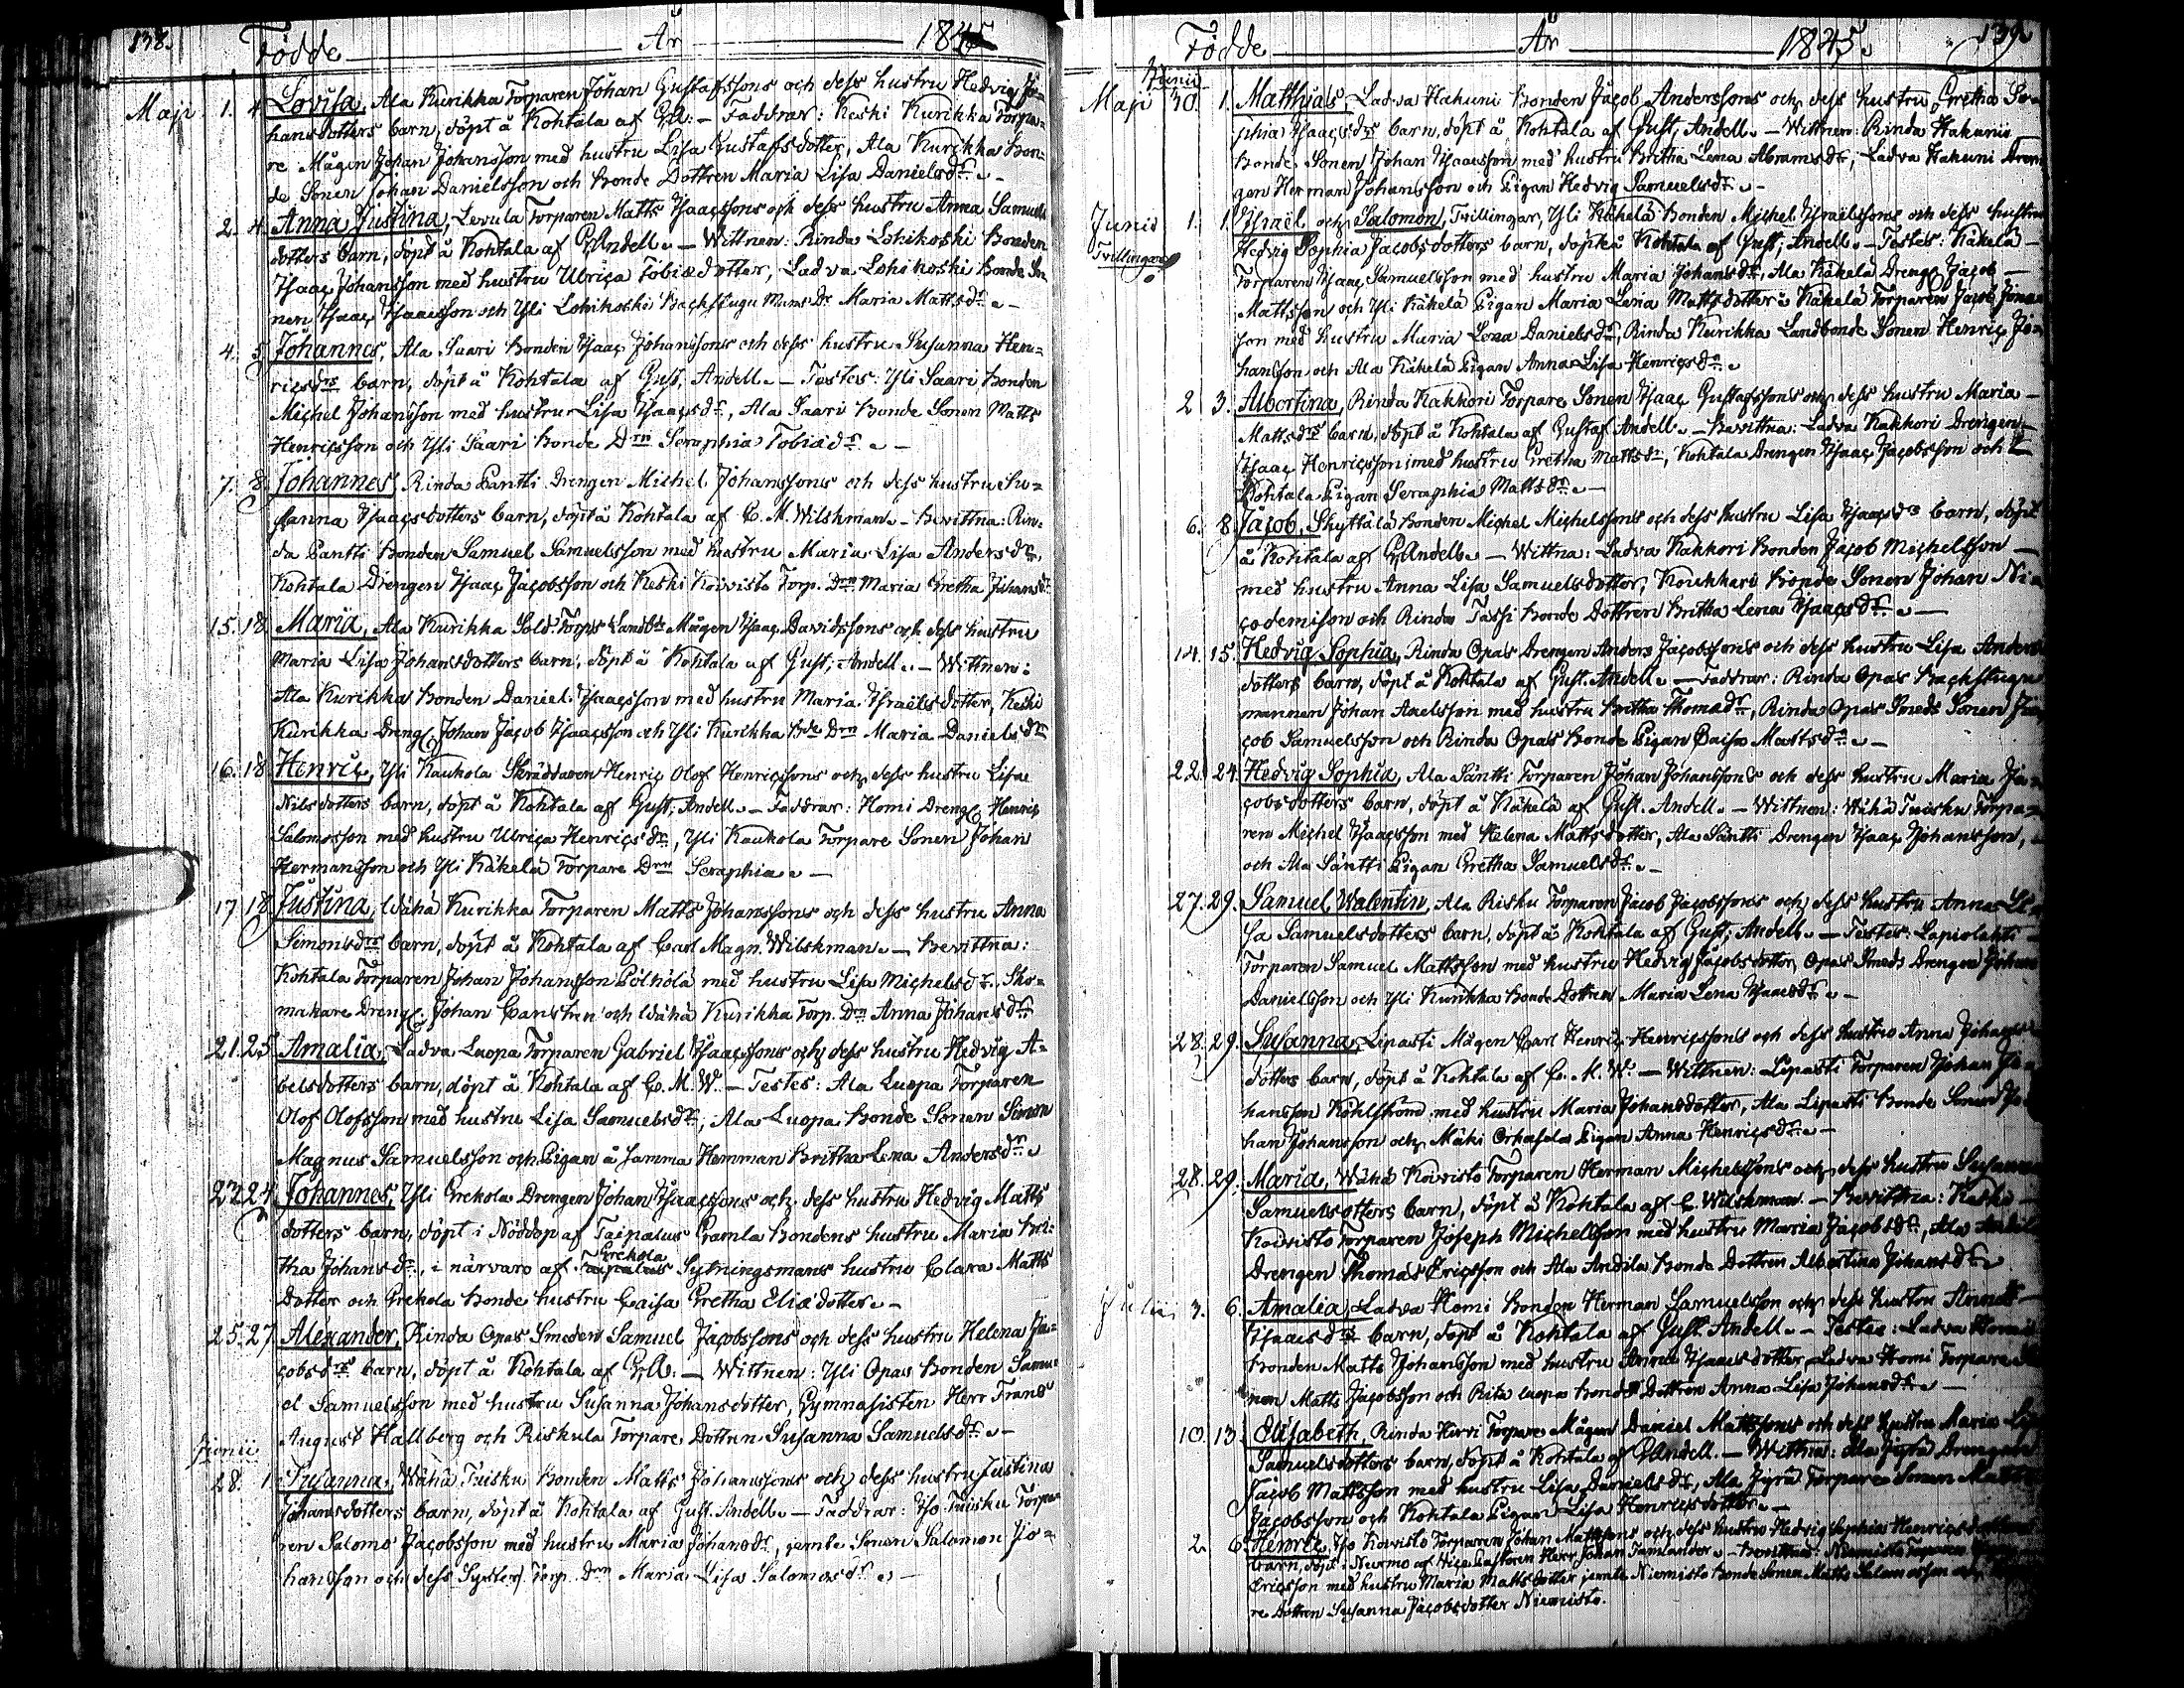 838.
Födde År 1845
Maji 1. 4. Lovisa, Ala Kurikka Torparen Johan Gustafssons och dess hustru Hedvig Jo-
hansdotters barn, döpt å Kohtala af GA: - Faddrar: Keski Kurikka Torpa-
re Mågen Johan Johansson med hustru Lisa Gustafsdotter, Ala Kurikka Bon-
de Sonen Johan Danielsson och Bonde Dottren Maria Lisa Danielsdr. -
2. 4. Anna Justina, Levula Torparen Matts Isaacssons och dess hustru Anna Samuels
dotters barn, döpt å Kohtala af G. Andell. - Wittnen: Rinda Lohikoski Bonden
Isaac Johansson med hustru Ulrica Tobiædotter, Ladva Lohikoski Bonde So-
nen Isaac Isaacsson och Yli Lohikoski Backstugu Mans Dr Maria Mattsdr. -
4. 5. Johannes, Ala Saari Bonden Isaac Johanssons och dess hustru Susanna Hen-
ricsdrs barn, döpt å Kohtala af Gust, Andell. - Testes: Yli Saari Bonden
Michel Johansson med hustru Lisa Isaacsdr, Ala Saari Bonde Sonen Matts
Henricsson och Yli Saari Bonde Drn Seraphia Tobiædr. -
7. 8. Johannes, Rinda Pantti Drengen Michel Johanssons och dess hustru Su-
sanna Isaacsdotters barn, döpt å Kohtala af C. M. Wilskman. - Bevittna: Rin-
da Pantti Bonden Samuel Samuelsson med hustru Maria Lisa Andersdr,
Kohtala Drengen Isaac Jacobsson och Keski Koivisto Torp. Drn Maria Gretha Johansdr
15. 18. Maria, Ala Kurikka Sold. Torps Landbds Mågen Isaac Davidssons och dess hustru
Maria Lisa Johansdotters barn, döpt å Kohtala af Gust, Andell. - Wittnen:
Ala Kurikka Bonden Daniel Isaacsson med hustru Maria Israëlsdotter, Keski
Kurikka Dreng. Johan Jacob Isaacsson och Yli Kurikka Bde Drn Maria Danielsdr
16. 18. Henric, Yli Kaukola Skräddaren Henric Olof Henricssons och dess hustru Lisa
Nilsdotters barn, döpt å Kohtala af Gust, Andell. - Faddrar: Homi Dreng. Henric
Salomosson med hustru Ulrica Henricsdr, Yli Kaukola Torpare Sonen Johan
Hermansson och Yli Käkelä Torpare Drn Seraphia. -
17. 18. Justina, Wähä Kurikka Torparen Matts Johanssons och dess hustru Anna
Simonsdrs barn, döpt å Kohtala af Carl Magn. Wilskman. - Bevittna:
Kohtala Torparen Johan Johansson Pölhölä med hustru Lisa Michelsdr. Sko-
makare Dreng. Johan Canstren och Wähä Kurikka Torp. Drn Anna Johansdr
21. 25. Amalia, Ladva Luopa Torparen Gabriel Isaacssons och dess hustru Hedvig A-
belsdotters barn, döpt å Kohtala af C. M. W. - Testes: Ala Luopa Torparen
Olof Olofsson med hustru Lisa Samuelsdr, Ala Luopa Bonde Sonen Simon
Magnus Samuelsson och Pigan å samma Hemman Britha Lena Andersdr.
23. 24. Johannes, Yli Grekola Drengen Johan Isaacssons och dess hustru Hedvig Matts
dotters barn, döpt i Nöddop af Taipalus Gamla Bondens hustru Maria Bri-
tha Johansdr, i närvaro af Grekola Sytningsmans hustru Clara Matts
Dotter och Grekola Bonde hustru Caisa Gretha Eliædotter. -
25. 27. Alexander, Rinda Opas Smeden Samuel Jacobssons och dess hustru Helena Ja-
cobsdrs barn, döpt å Kohtala af GA. - Wittnen: Yli Opas Bonden Samu-
el Samuelsson med hustru Susanna Johansdotter, Gymnasisten Herr Frans
August Hallberg och Riskula Torpare Dottren Susanna Samuelsdr. -
Junii
28. 1. Susanna, Wähä Tuisku Bonden Matts Johanssons och dess hustru Justina
Johansdotters barn, döpt å Kohtala af Gust. Andell. - Faddrar: Iso Tuisku Torpa-
ren Salomo Jacobsson med hustru Maria Johansdr, jemte Sonen Salomon Jo-
hansson och dess Syster Torp. Drn Maria Lisa Salomosdr. -
Födde År 1845. 139.
Junii
Maji 30. 1. Matthias, Ladva Hakuni Bonden Jacob Anderssons och dess hustru Gretha So-
phia Isaacsdrs barn, döpt å Kohtala af Gust, Andell. - Wittnen: Rinda Hakuni
Bonde Sonen Johan Isaacsson med hustru Britha Lena Abramsdr, Ladva Hakuni Dren-
gen Herman Johansson och Pigan Hedvig Samuelsdr. -
Junii 1. 1. Israël och Salomon, Tvillingar, Yli Käkelä Bonden Michel Israëlssons och dess hustru
Tvillingar
Hedvig Sophia Jacobsdotters barn, döpt å Kohtala af Gust, Andell. - Testes: Käkelä
Torparen Isaac Samuelsson med hustru Maria Johansdr, Ala Käkelä Dreng. Jacob
Mattsson och Yli Käkelä Pigan Maria Lena Mattsdotter. Käkelä Torparen Jacob Johans-
son med hustru Maria Lena Danielsdr, Rinda Kurikka Landbonde Sonen Henric Jo-
hansson och Ala Käkelä Pigan Anna Lisa Henricsdr.
2. 3. Albertina, Rinda Kakkori Torpare Sonen Isaac Gustafssons och dess hustru Maria
Mattsdrs barn, döpt å Kohtala af Gustaf Andell. - Bevittna: Ladva Kakkori Drengen
Isaac Henricsson med hustru Gretha Mattsdr, Kohtala Drengen Isaac Jacobsson och
Kohtala Pigan Seraphia Mattsdr. -
6. 8. Jacob, Skyttälä Bonden Michel Michelssons och dess hustru Lisa Isaacsdrs barn, döpt
å Kohtala af G. Andell. - Wittna: Ladva Kakkori Bonden Jacob Michelsson
med hustru Anna Lisa Samuelsdotter, Koukkari Bonde Sonen Johan Ni-
codemison och Rinda Tassi Bonde Dottren Britha Lena Isaacsdr. -
14. 15. Hedvig Sophia, Rinda Opas Drengen Anders Jacobssons och dess hustru Lisa Anders
dotters barn, döpt å Kohtala af Gust. Andell. - Faddrar: Rinda Opas Backstugu
mannen Johan Axelsson med hustru Britha Thomædr, Rinda Opas Smeds Sonen Ja-
cob Samuelsson och Rinda Opas Bonde Pigan Caisa Mattsdr. -
22. 24. Hedvig Sophia, Ala Säntti Torparen Johan Johanssons och dess hustru Maria Ja-
cobsdotters barn, döpt å Käkelä af Gust. Andell. - Wittnen: Wähä Tuisku Torpa-
ren Michel Isaacsson med Helena Mattsdotter, Ala Säntti Drengen Isaac Johansson,
och Ala Säntti Pigan Gretha Samuelsdr. -
27. 29. Samuel Walentin, Ala Risku Torparen Jacob Jacobssons och dess hustru Anna Li-
sa Samuelsdotters barn, döpt å Kohtala af Gust, Andell. - Testes: Lapiolahti
Torparen Samuel Mattsson med hustru Hedvig Jacobsdotter, Opas Smeds Drengen Johan
Danielsson och Yli Kurikka Bonde Dottren Maria Lena Isaacsdr. -
28. 29. Susanna, Lipasti Mågen Carl Henric Henricssons och dess hustru Anna Johans
dotters barn, döpt å Kohtala af C. M. W. - Wittnen: Lipasti Torparen Johan Jo-
hansson Kohlström med hustru Maria Johansdotter, Ala Lipasti Bonde Sonen Jo-
han Johansson och Mäki Orhafala Pigan Anna Henricsdr. -
28. 29. Maria, Wähä Koivisto Torparen Herman Michelssons och dess hustru Susanna
Samuelsdotters barn, döpt å Kohtala af C. Wilskman. - Bevittna: Keski
Koivisto Torparen Joseph Michelsson med hustru Maria Jacobsdr, Ala
Drengen Thomas Ericsson och Ala Andila Bonde Dottren Albertina Johansdr.
Julii 3. 6. Amalia, Ladva Homi Bonden Herman Samuelsson och dess hustru Anna
Isaacsdrs barn, döpt å Kohtala af Gust. Andell. - Testes: Ladva Homi
Bonden Matts Johansson med hustru Anna Isaacsdotter, Ladva Homi Torpare
nen Matts Jacobsson och Rita Luopa Bonde Dottren Anna Lisa Johansdr. -
10. 13. Elisabeth, Rinda Hirvi Torpare Mågen Daniel Mattssons och dess hustru Maria
Samuelsdotters barn, döpt å Kohtala af G. Andell. - Wittna: Ala Jyrä Drengen
Jacob Mattsson med hustru Lisa Danielsdr, Ala Jyrä Torpare Sonen Matts
Jacobsson och Kohtala Pigan Lisa Henricsdotter. -
2. 6. Henric, Iso Koivisto Torparen Johan Mattssons och dess hustru Hedvig Sophia Henricsdotters
barn, döpt i Nurmo af Vice Pastoren Herr Johan Tamlander. - Bevittna: Niemistö
Ericsson med hustru Maria Mattsdotter, jemte Niemistö Bonde Sonen Matts Salomosson och
re Dottren Susanna Jacobsdotter Niemistö.